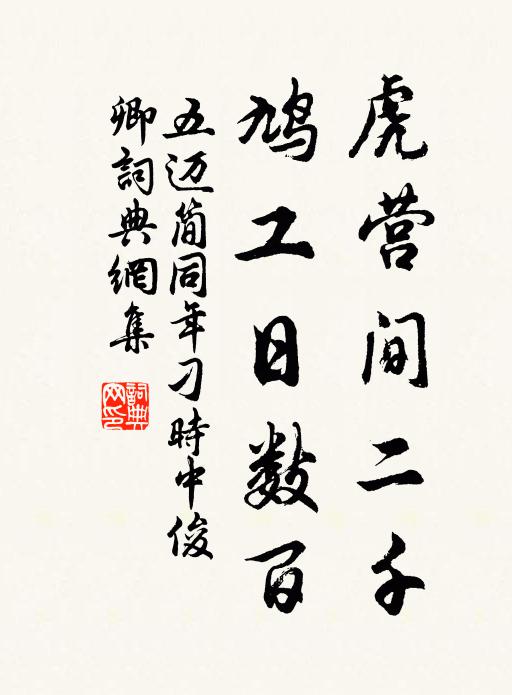 虎营间二千
鸠工日数百
五迈简同年刁時中俊
卿詞典網集
詞典網印